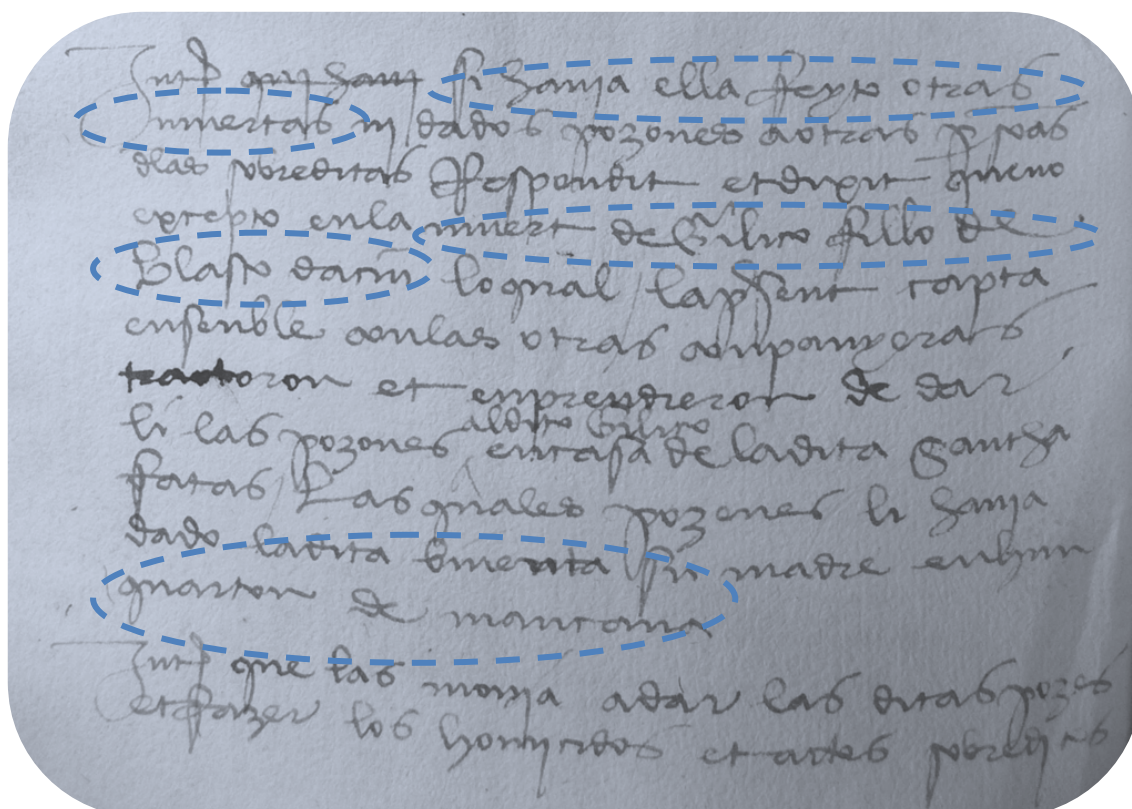 Intd quj hauj si hauja ella feyto otras
muertas nj dados pozones a otras psonas
dlas sobreditas Respondit et dixit que no
excepto en la muert de Gilico fillo de
Blasco loqual la psent
ensenble con las otras companyeras
tractoron et enprendieron de dar
li las pozones al dito Gilico en casa de la dita Gantxa
fatas Las quales pozones li hauja
dado la dita su madre en hun
quarton de mançana
Intd que las mouja a dar las ditas pozones
et fazer los homjcidos et actes sobreditos